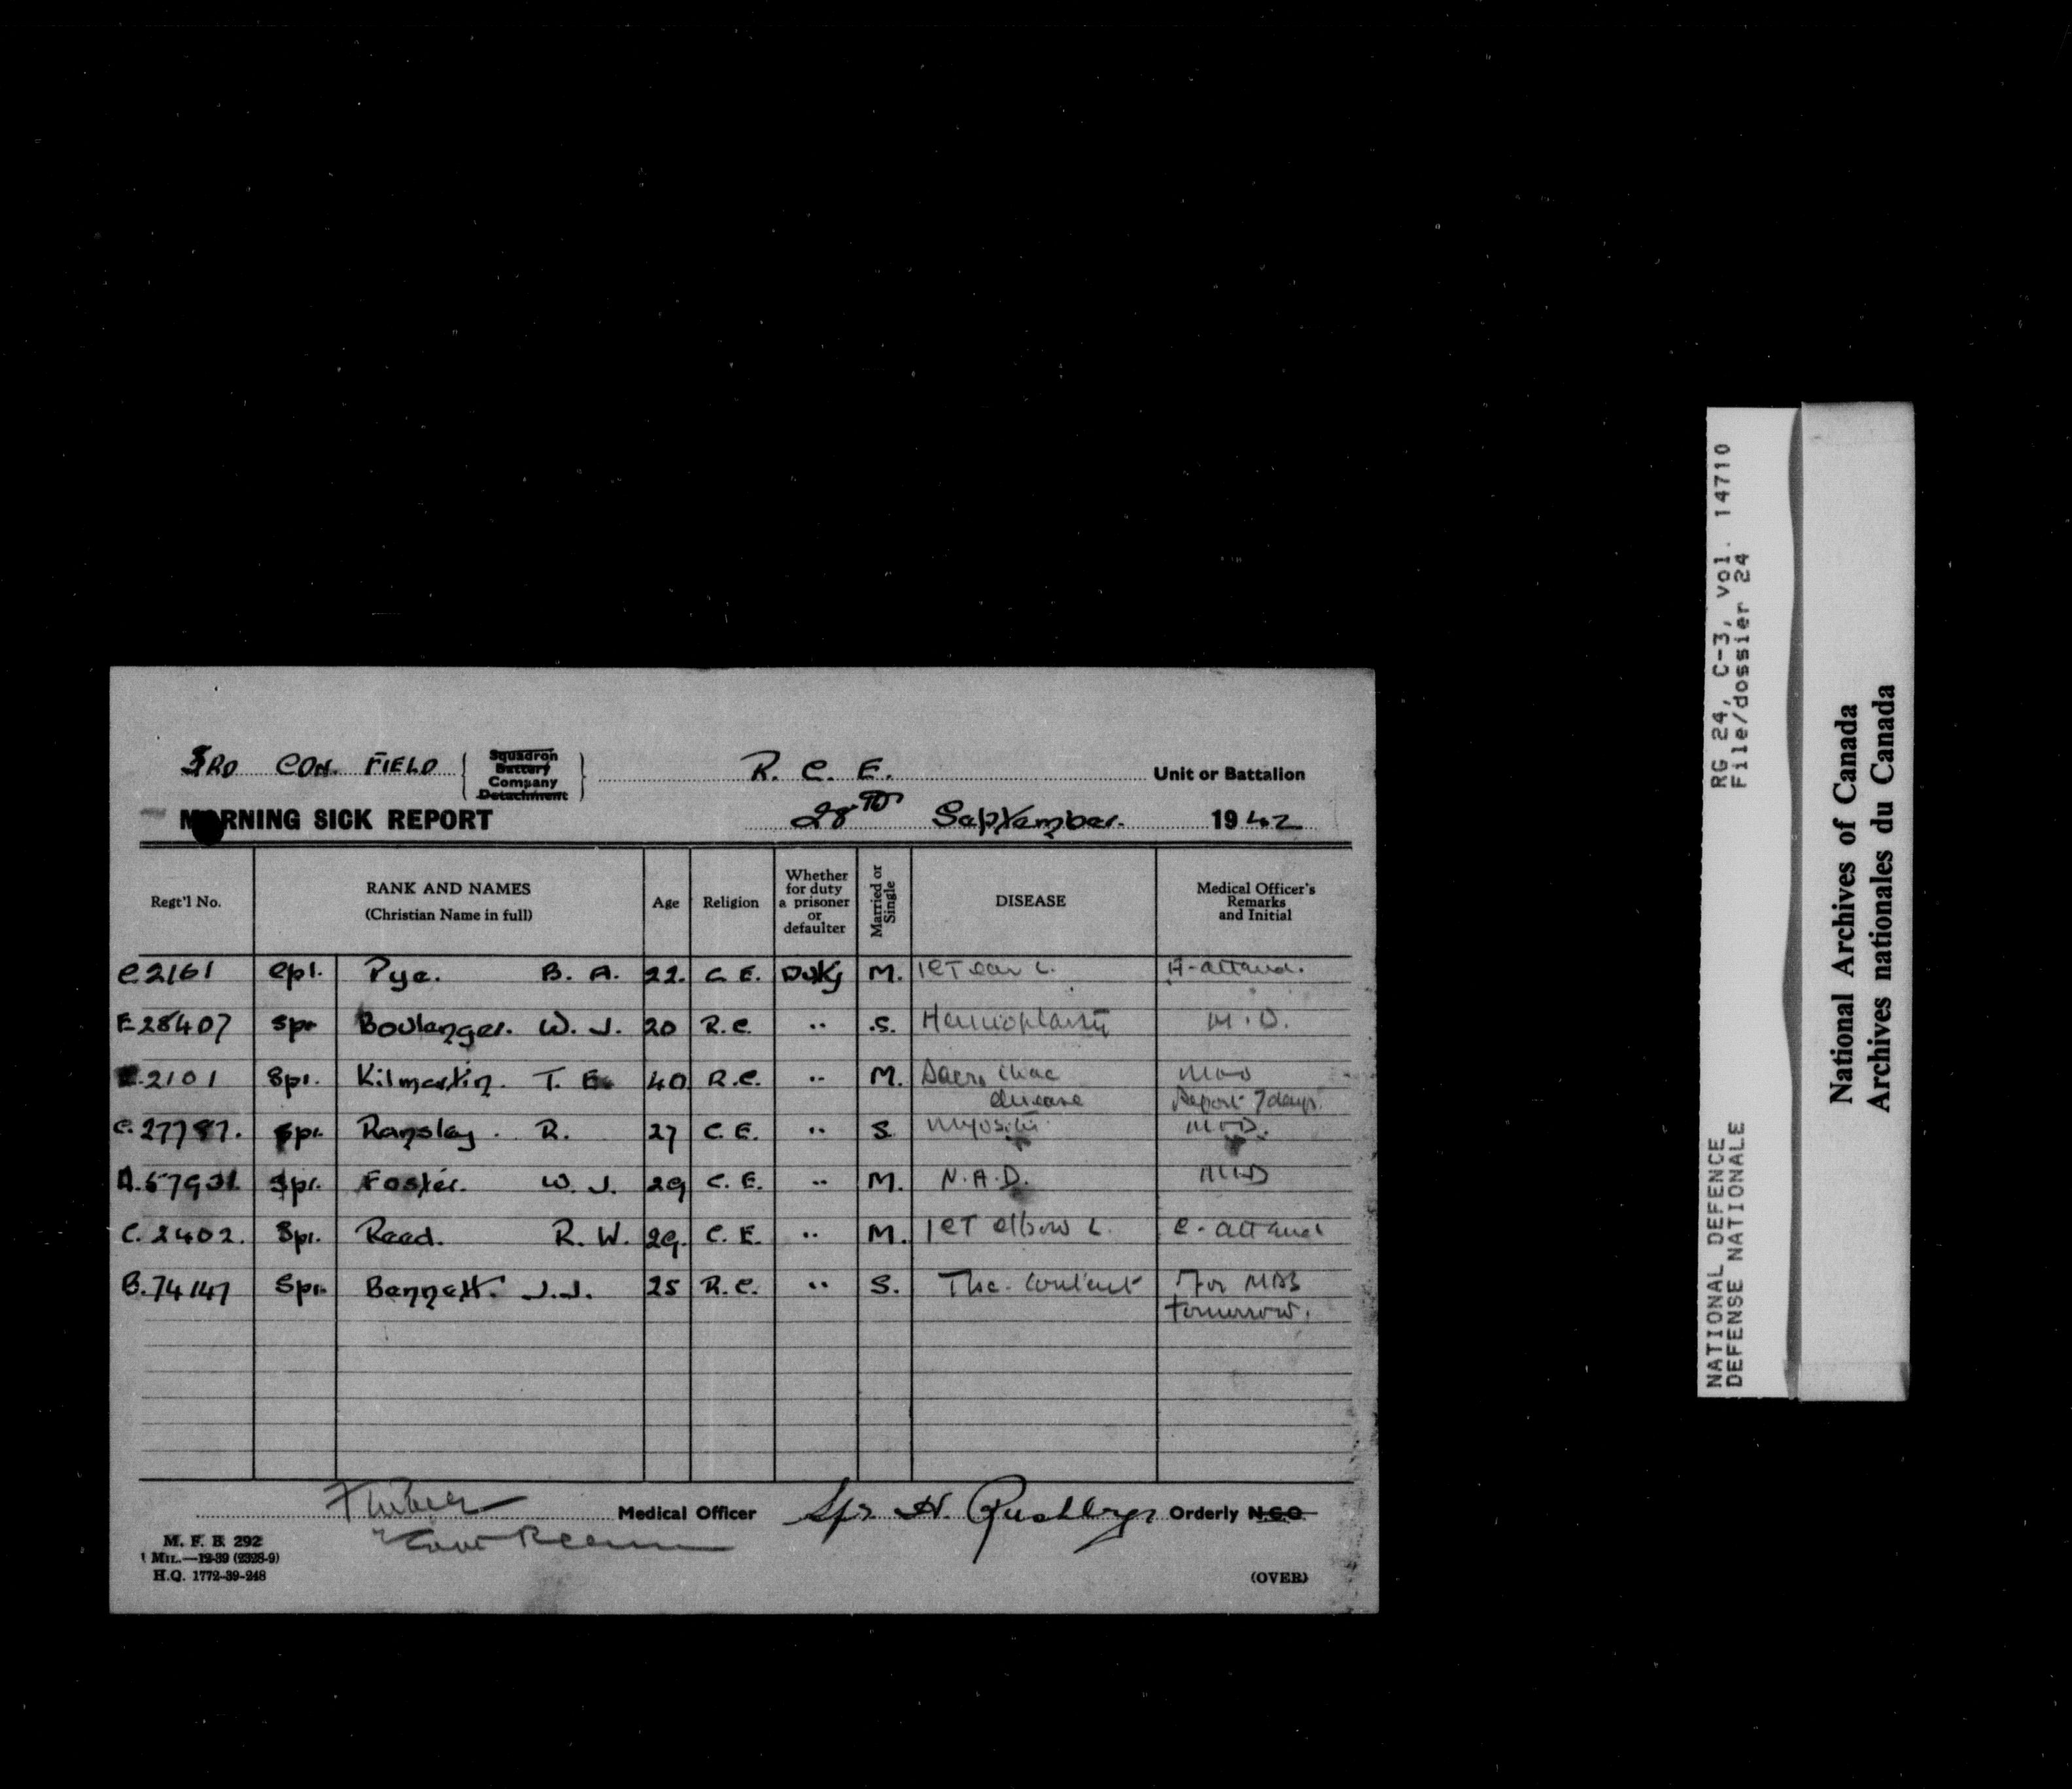 3RD CDN. FIELD Squadron Battery Company Detachment R. C. E. Unit or Battalion
MORNING SICK REPORT 28TH September. 1942
Regt'l No. RANK AND NAMES (Christian Name in full) Age Religion Whether for duty a prisoner or defaulter Married or Single DISEASE Medical Officer's Remarks and Initial
C2161 Cpl. Pye. B. A. 22. C.E. Duty M. ear L. A-attend.
E28407 Spr Boulanger. W. J. 20 R.C. " S. M.D.
2101 Spr. Kilmartin. T. E. 40 R.C. " M. Sacro iliac M+D
disease Report 7 days.
C.27787. Spr. Ransley. R. 27 C.E. " S. Myositis M+D.
A.57931. Spr. Foster. W. J. 29 C.E. " M. N.A.D. M+D
C.2402. Spr. Reed. R. W. 29. C.E. " M. elbow L. C-attend
B.74147 Spr. Bennett. J.J. 25 R.C. " S. Tbc. Contact For
tomorrow.
Medical Officer Spr H. Orderly N.C.O.
M. F. B. 292
MIL.—12-39 (2328-9)
H.Q. 1772-39-248
(OVER)
RG 24, C-3, vol. 14710
File/dossier 24
NATIONAL DEFENCE
DEFENSE NATIONALE
National Archives of Canada
Archives nationales du Canada